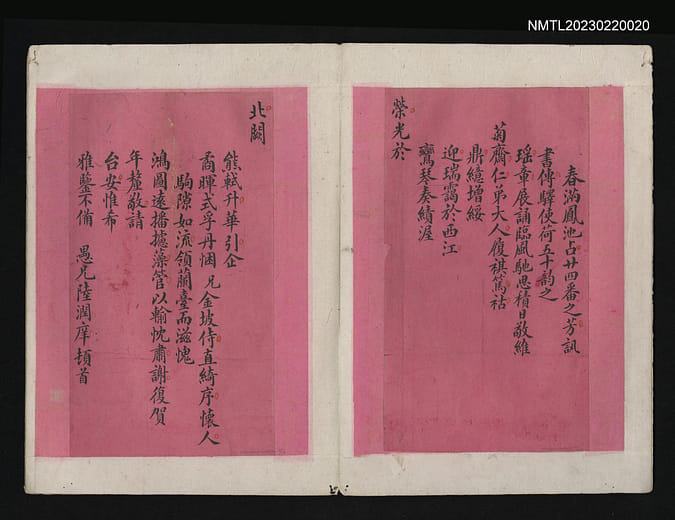 NMTL20230220020
春滿鳳池占廿四番之芳訊
書傳驛使荷五十韵之
瑶章展誦臨風馳思積日敬維
菊齋仁弟大人履祺篤祜
鼎繶增綏
迎瑞靄於西江
鸞琴奏績渥
榮光於
北闕
熊軾升華引企
矞暉式孚丹悃兄金坡侍直綺序懷人
駒隙如流領蘭臺而滋愧
鴻圖遠播攄藻管以輸忱肅謝復賀
年釐敬請
台安惟希
雅鑒不備 愚兄陸潤庠頓首